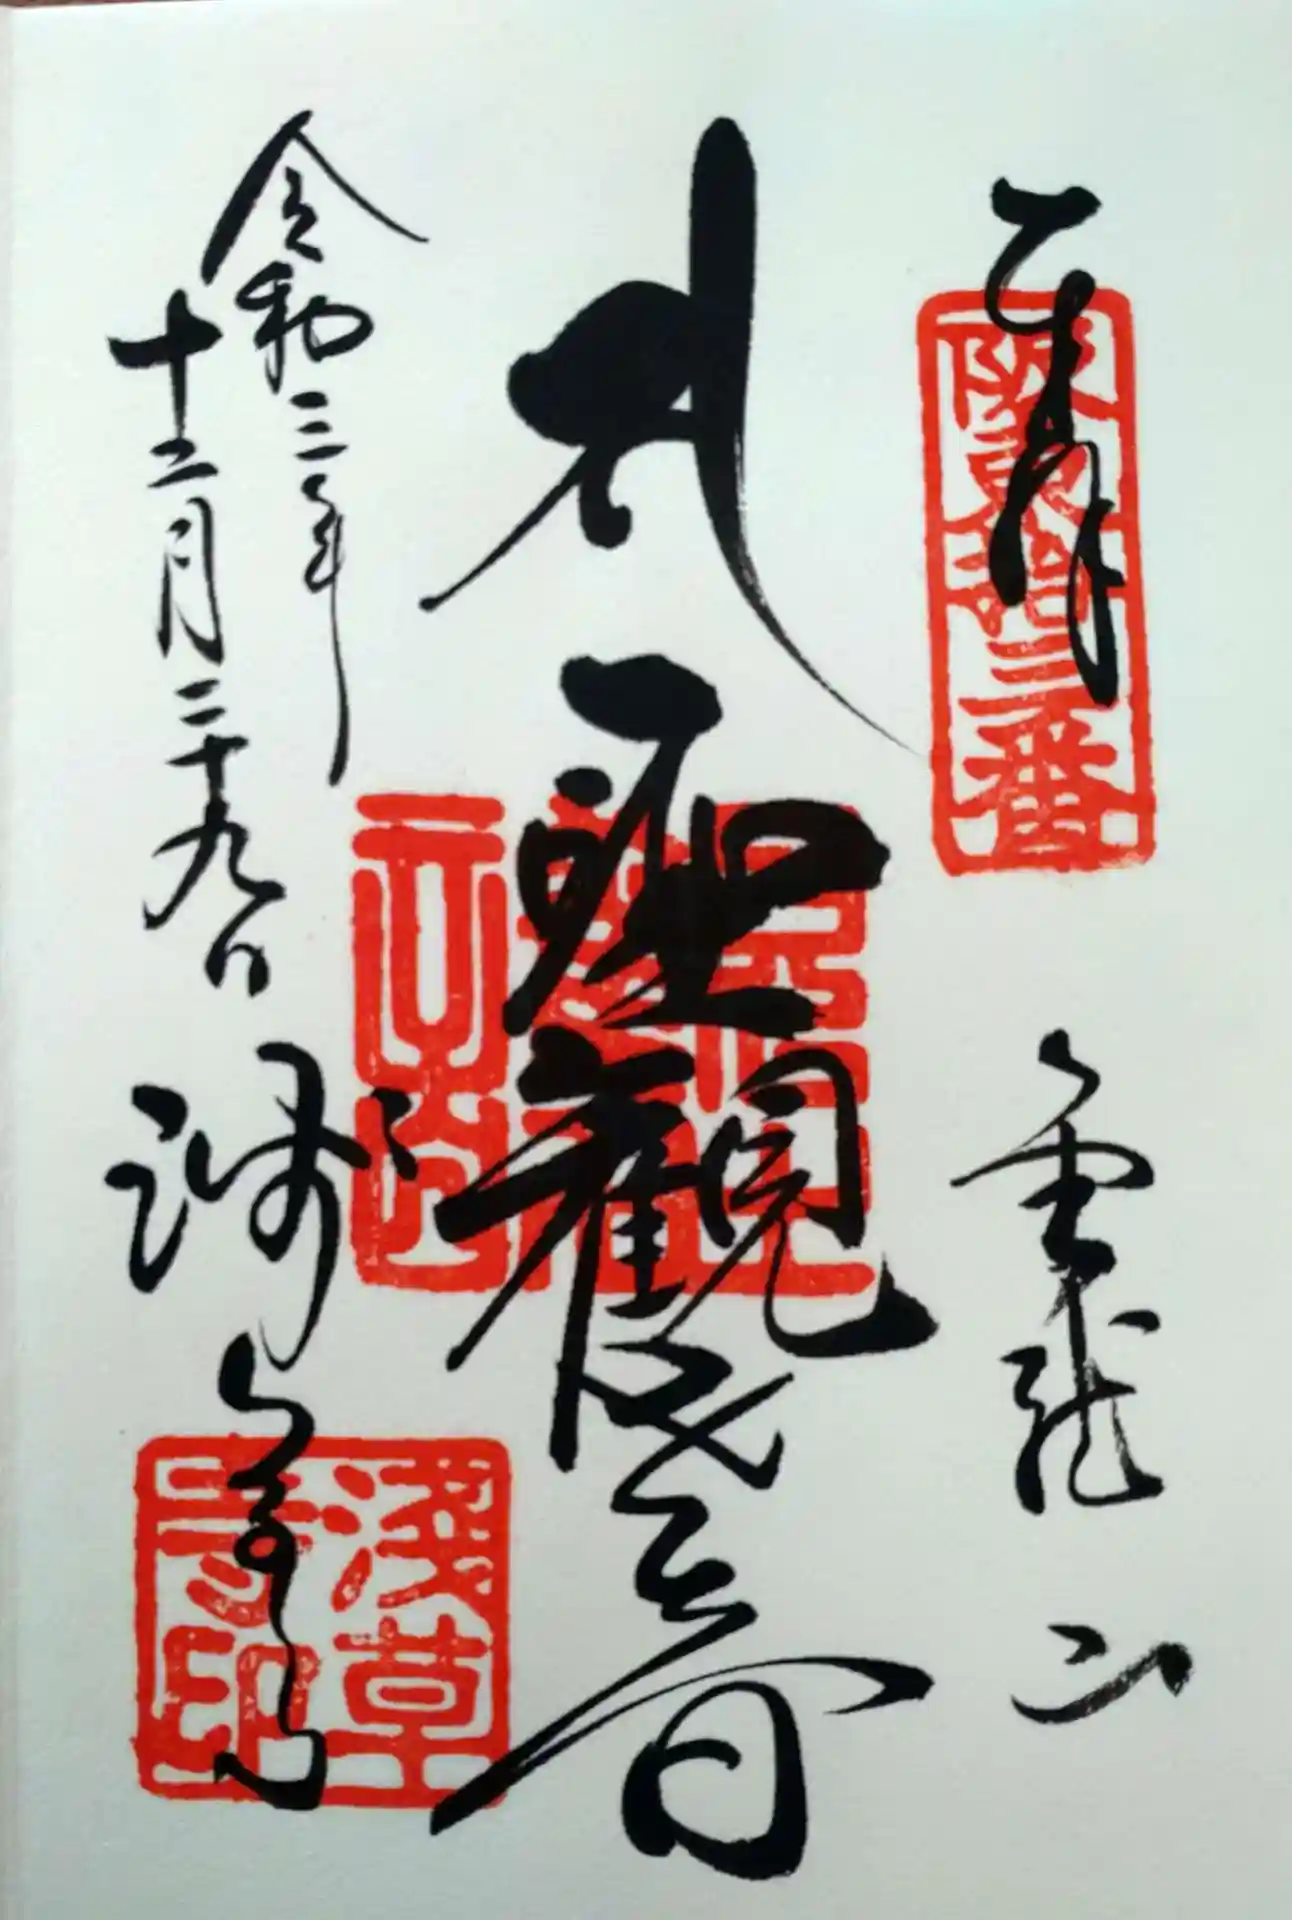 奉拝
坂東拾三番
金龍山
聖観世音
令和三年
十二月二十九日
浅草寺
浅草
寺印